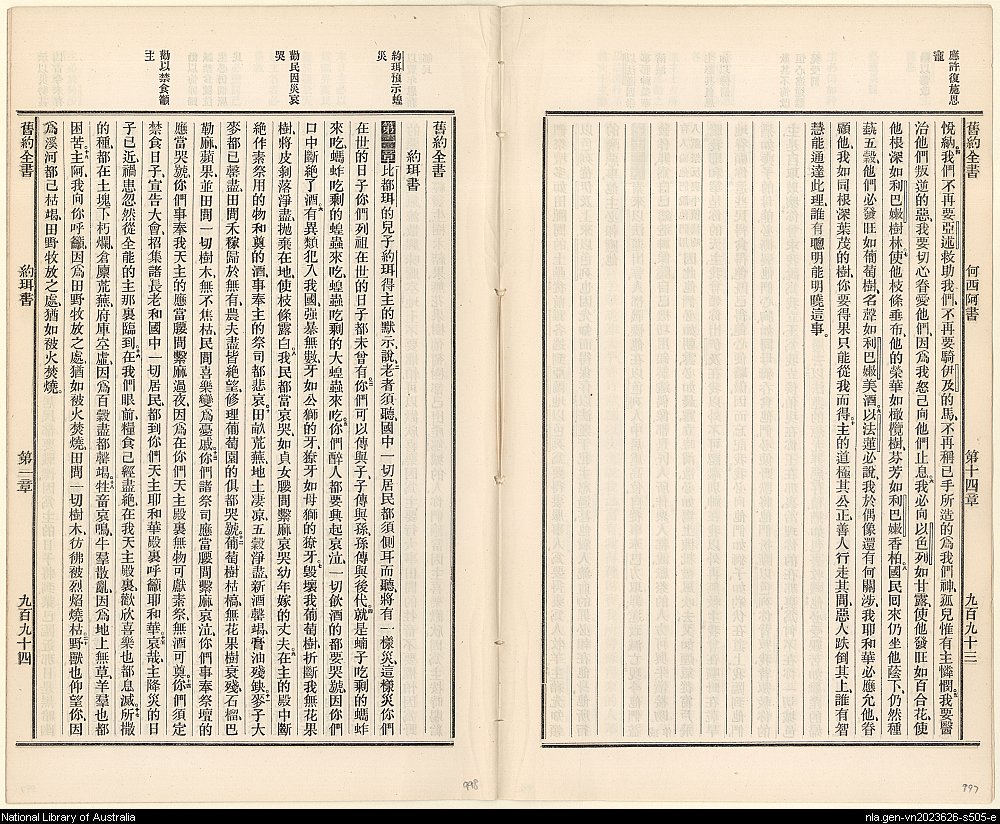 應許復施恩
寵
舊約全書 何西阿書 第十四章 九百九十三
悅納我們、不再要亞述救助我們、不再要騎伊及的馬、不再稱己手所造的爲我們神、孤兒惟有主憐憫我要醫
治他們叛逆的惡、我要切心眷愛他們、因爲我怒己向他們止息我必向以色列如甘露、使他發旺如百合花、使
他根深如利巴嫩樹林、使他枝條垂布、他的榮華如橄欖樹、芬芳如利巴嫩香柏國民囘來仍坐他蔭下、仍然種
藝五穀、他們必發旺如葡萄樹、名聲如利巴嫩美酒以法蓮必說、我於偶像還有何關涉、我耶和華必應允他、眷
顧他、我如同根深葉茂的樹、你要得果只能從我而得主的道極其公正、善人行走其間、惡人跌倒其上、誰有智
慧能通達此理、誰有聰明能明曉這事。
約珥預示蝗
災
勸民因災哀
哭
勸以禁食籲
主
舊約全書
約珥書
第一章比都珥的兒子約珥得主的默示、說老者須聽、國中一切居民都須側耳而聽、將有一樣災、這樣災你們
在世的日子、你們列祖在世的日子、都未曾有你們可以傳與子、子傳與孫、孫傳與後代就是蝻子吃剩的、蠣蚱
來吃、螞蚱吃剩的、蝗蟲來吃、蝗蟲吃剩的、大蝗蟲來吃你們醉人都要興起哀泣、一切飲酒的都要哭號、因你們
口中斷絕了酒有異類犯入我國、強暴無數、牙如公獅的牙、獠牙如母獅的獠牙毀壞我葡萄樹、折斷我無花果
樹、將皮剝落淨盡、拋棄在地、使枝條露白我民都當哀哭、如貞女腰間繫麻哀哭幼年嫁的丈夫在主的殿中斷
絕作素祭用的物和奠的酒、事奉主的祭司都悲哀田畝荒蕪、地土凄凉、五穀淨盡、新酒罄竭、膏油殘缺麥子大
麥都已罄盡、田間禾稼歸於無有、農夫盡皆絕望、修理葡萄園的俱都哭號葡萄樹枯槁、無花果樹衰殘、石榴、巴
勒麻、蘋果、並田間一切樹木、無不焦枯、民間喜樂變爲憂戚你們諸祭司應當腰間繫麻哀泣、你們事奉祭壇的
應當哭號、你們事奉我天主的、應當腰間繫麻過夜、因爲在你們天主殿裏、無物可獻素祭、無酒可奠你們須定
禁食日子、宣告大會、招集諸長老和國中一切居民、都到你們天主耶和華殿裏、呼籲耶和華哀哉、主降災的日
子已近、禍患忽然從全能的主那裏臨到在我們眼前、糧食已經盡絕、在我天主殿裏、歡欣喜樂也都息滅所撒
的種、都在土塊下朽爛、倉廩荒蕪、府庫空虛、因爲百穀盡都罄竭牲畜哀鳴、牛羣散亂、因爲地上無草、羊羣也都
困苦主阿、我向你呼籲、因爲田野牧放之處、猶如被火焚燒、田間一切樹木、彷彿被烈焰燒枯野獸也仰望你、因
爲溪河都已枯竭、田野牧放之處、猶如被火焚燒。
舊約全書 約珥書 第一章 九百九十四
998
997
National Library of Australia
nla.gen-vn2023626-s505-e